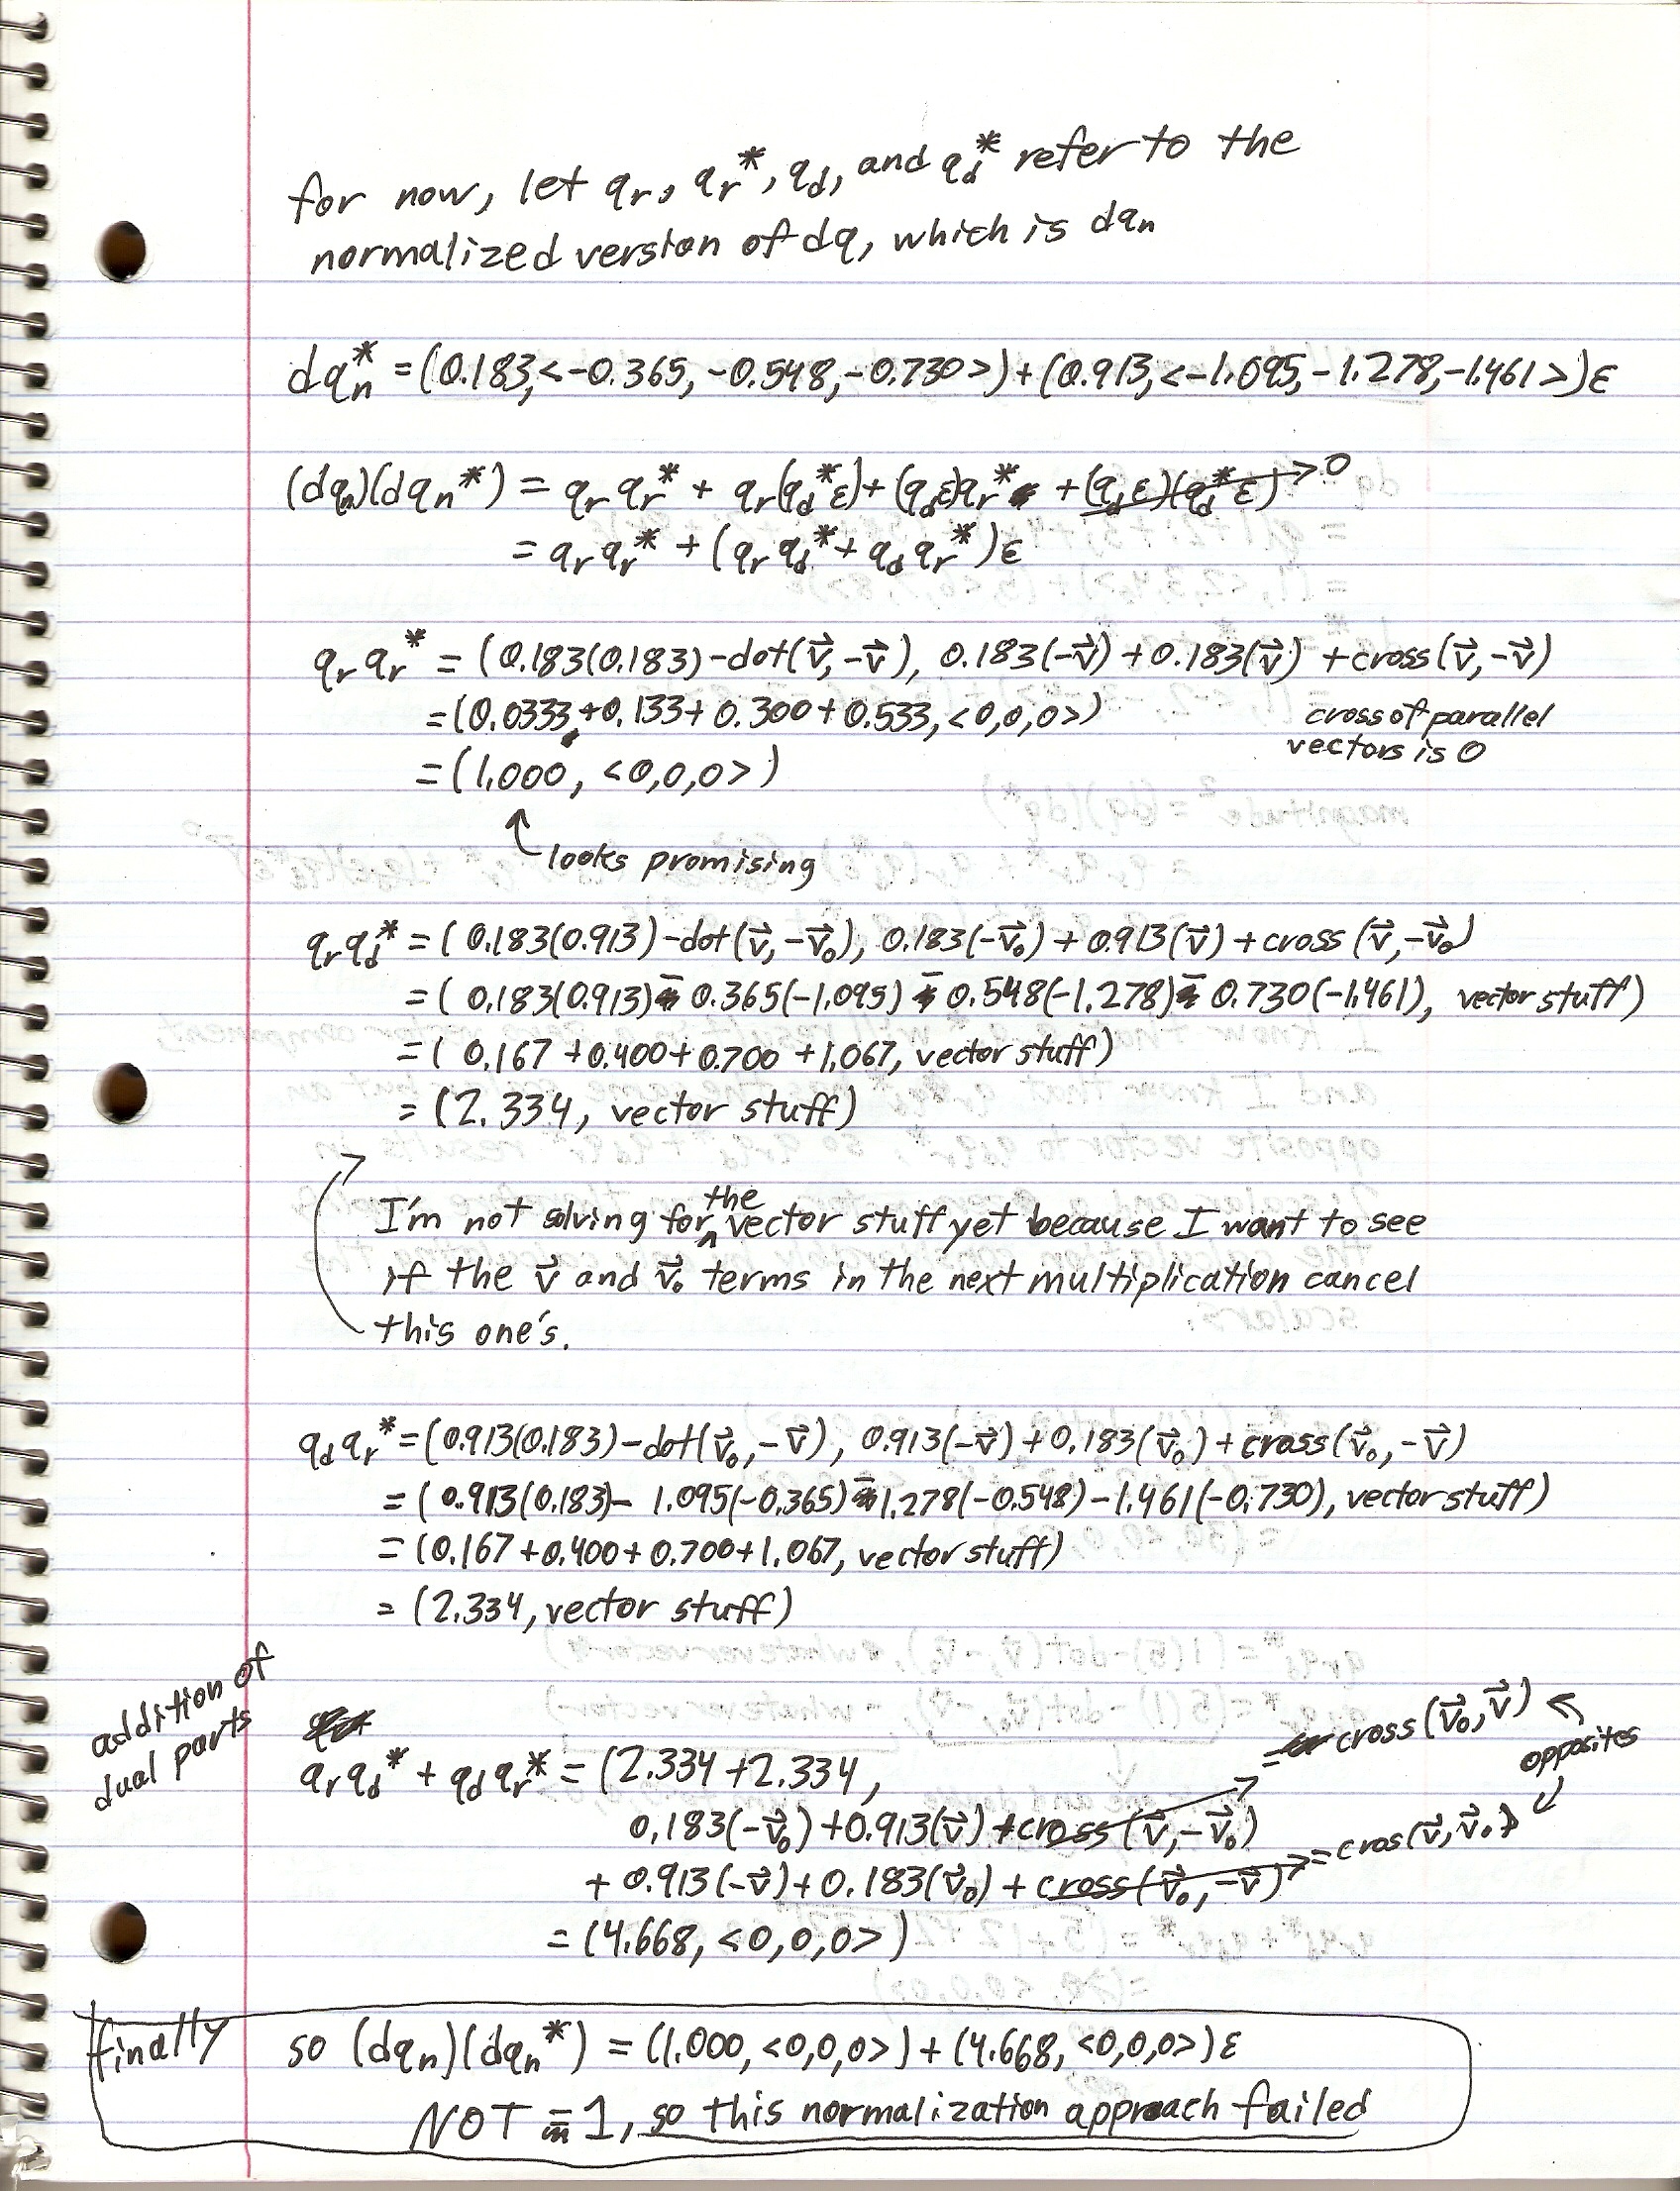 for now, let qr, qr*, qd, and qd* refer to the
normalized version of dq, which is dqn
dqn* = (0.183,<-0.365, -0.548, -0.730>) + (0.913,<-1.095, -1.278, -1.461>)ε
(dqn)(dqn*) = qr qr* + qr(qd*ε) + (qdε)qr* + (qdε)(qd*ε) → 0
= qr qr* + (qr qd* + qd qr*)ε
qr qr* = (0.183(0.183)-dot(v⃗, -v⃗), 0.183(-v⃗) + 0.183(v⃗) + cross(v⃗, -v⃗)
=(0.0333+0.133+0.300+0.533, <0,0,0>)
cross of parallel
vectors is 0
= (1.000, <0,0,0>)
looks promising
qr qd* = (0.183(0.913)-dot(v⃗, -v⃗o), 0.183(-v⃗o) + 0.913(v⃗) + cross(v⃗, -v⃗o)
= (0.183(0.913) - 0.365(-1.095) - 0.548(-1.278) - 0.730(-1.461), vector stuff)
= (0.167 + 0.400 + 0.700 + 1.067, vector stuff)
= (2.334, vector stuff)
I'm not solving for the vector stuff yet because I want to see
if the v⃗ and v⃗o terms in the next multiplication cancel
this one's.
qd qr* = (0.913(0.183)-dot(v⃗o, -v⃗), 0.913(-v⃗) + 0.183(v⃗o) + cross(v⃗o, -v⃗)
= (0.913(0.183) - 1.095(-0.365) - 1.278(-0.548) - 1.461(-0.730), vector stuff)
= (0.167 + 0.400 + 0.700 + 1.067, vector stuff)
= (2.334, vector stuff)
addition of
dual parts
qr qd* + qd qr* = (2.334 + 2.334,
0.183(-v⃗o) + 0.913(v⃗) + cross(v⃗, -v⃗o) = cross(v⃗o, v⃗)
+ 0.913(-v⃗) + 0.183(v⃗o) + cross(v⃗o, -v⃗) = cros(v⃗, v⃗o)
opposites
= (4.668, <0,0,0>)
finally so (dqn)(dqn*) = (1.000, <0,0,0>) + (4.668, <0,0,0>)ε
NOT = 1, so this normalization approach failed